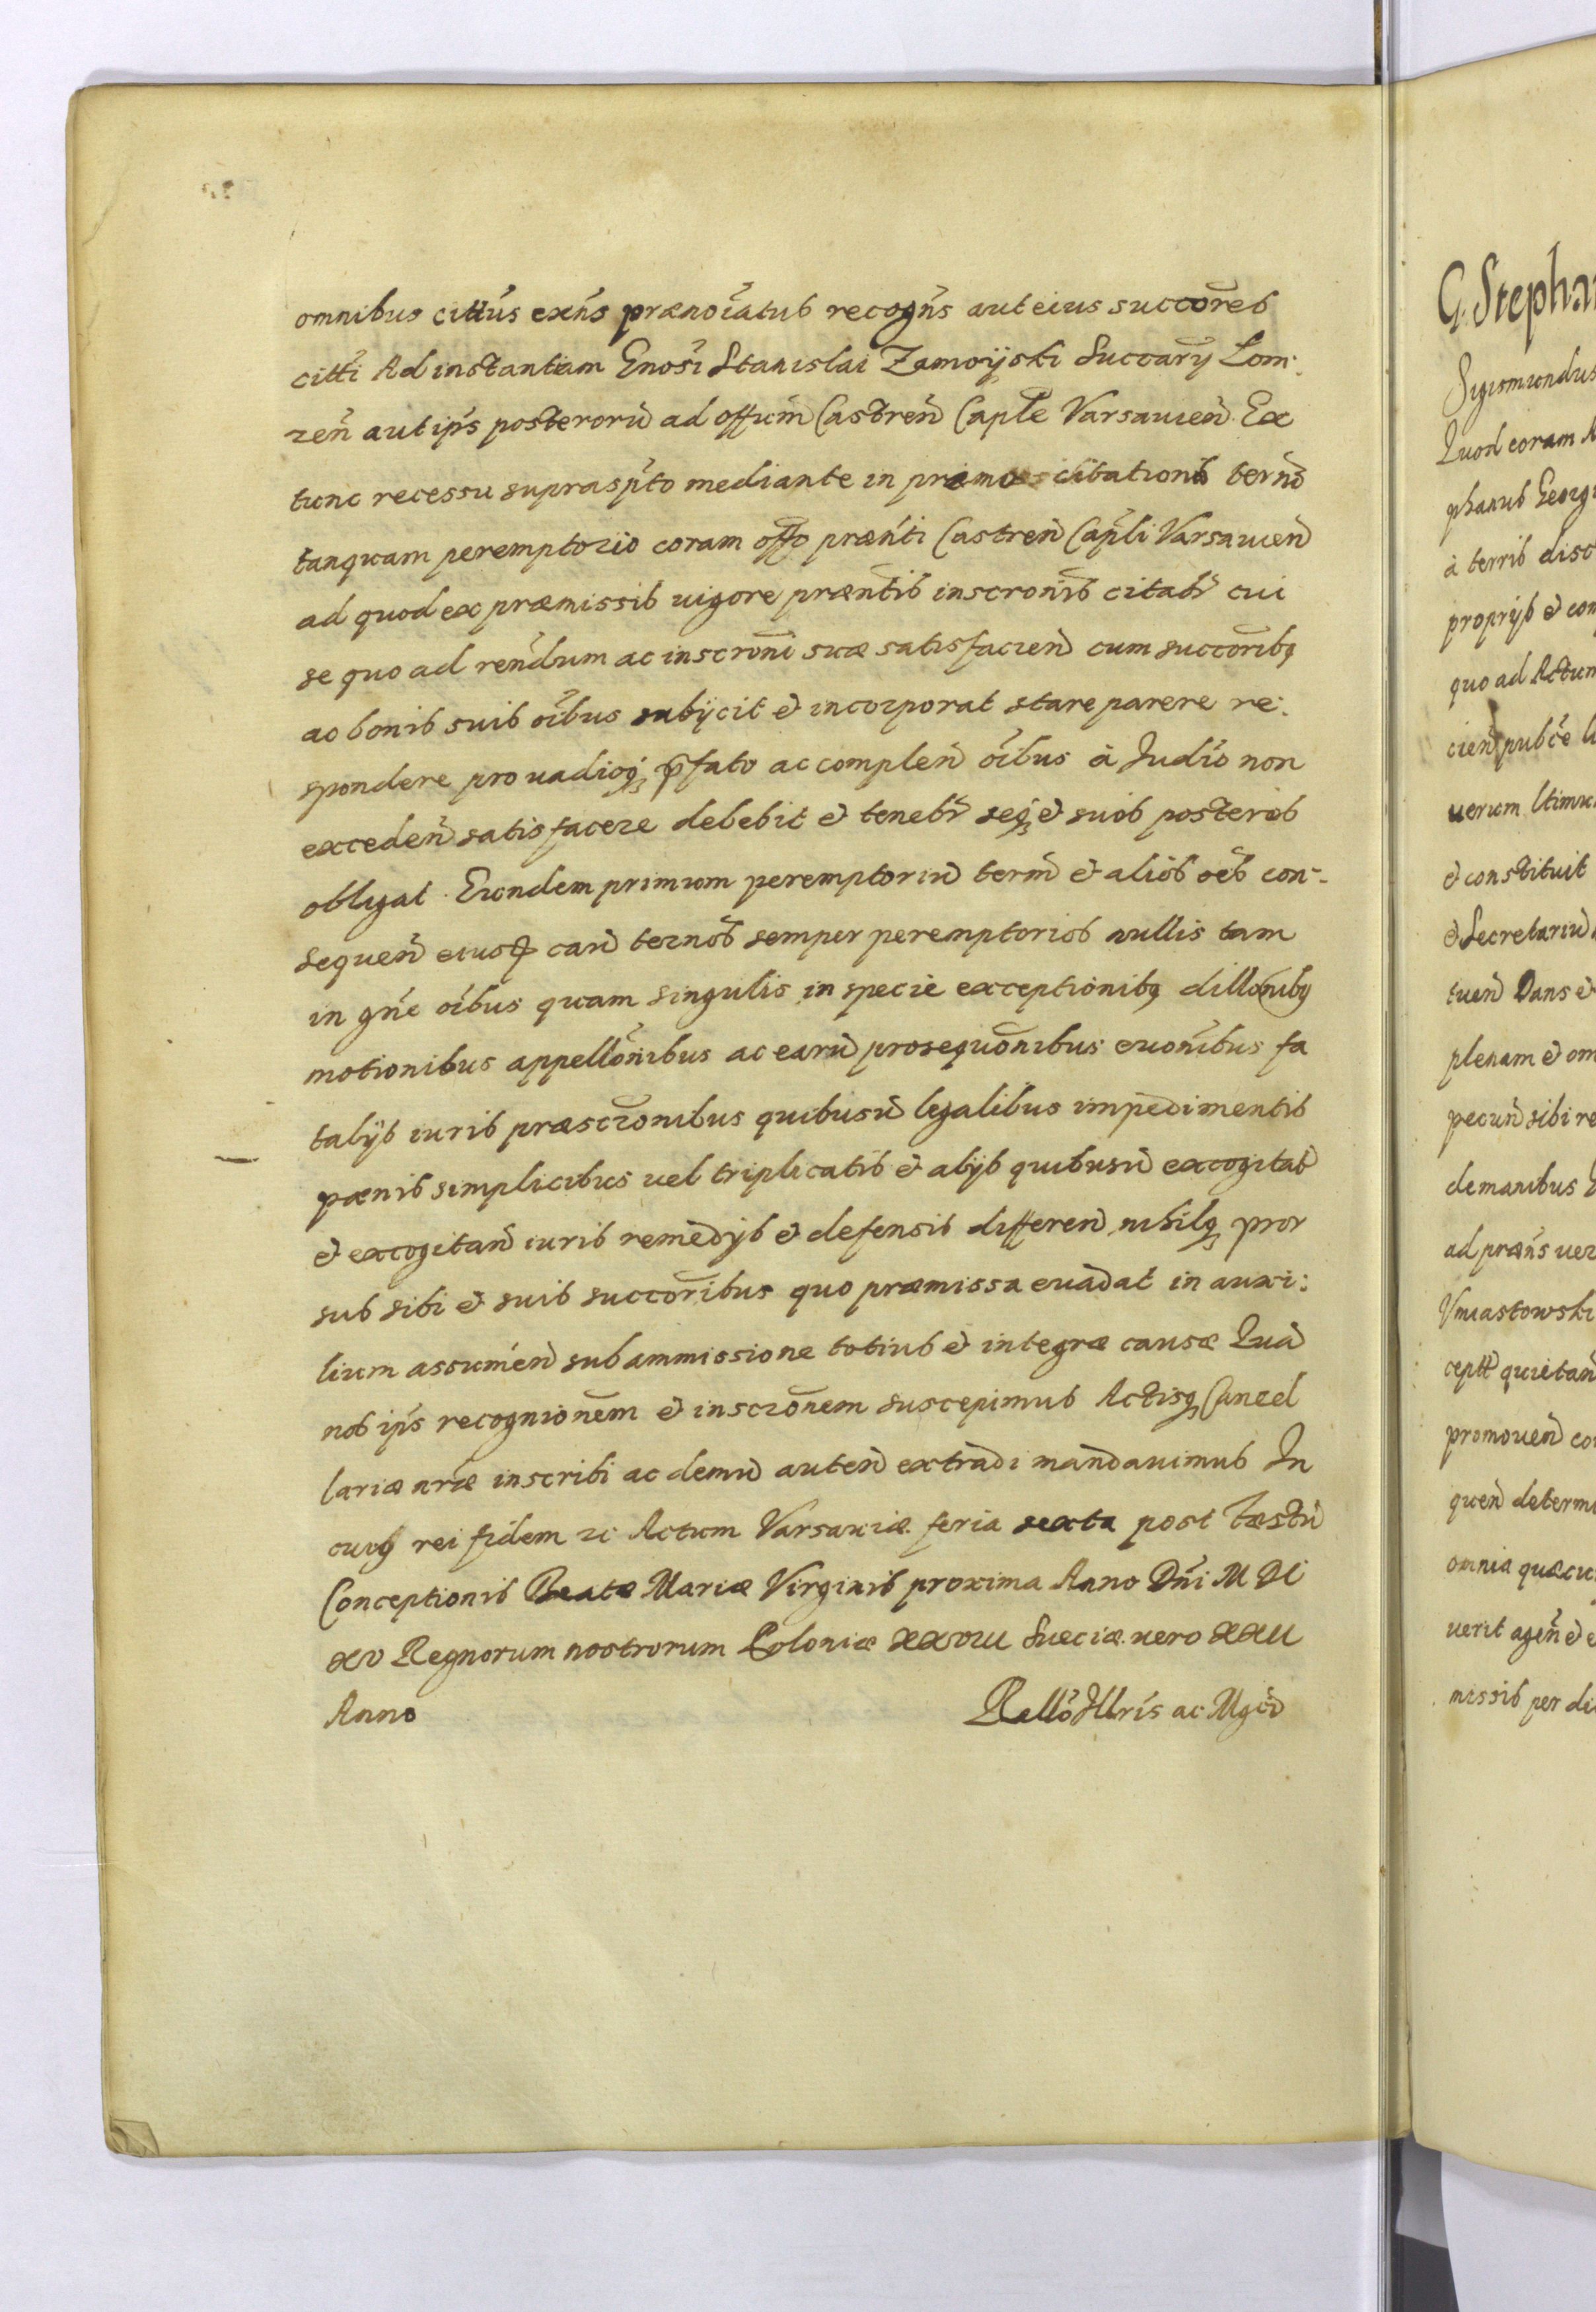 omnibus cittús exńs prænoiatus recogńs aut eius succores
citti Ad instantiam Gnosi Stanislai Zamoyski Succary Lom:
zeń aut ipís posterorū ad offium Castreń Caple Varsavień Ex
tunc recessu supraspto mediante in primo citationis terno
tanquam peremptorio coram offo præńti Castreń Capli Varsavień
ad quod ex præmissis uigore præntis inscronis citatr cui
se quo ad rendum ac inscroni suæ satisfacień cum succoribq
ac bonis suis oibus subijcit et incorporat stare parere re:
spondere pro uadioq; p̄fato ac compleń oibus à Judio non
excedeń satisfacere debebit et tenebr seq; et suos posteros
obligat. Eundem primum peremptoriū term et alios oes con-
sequeń eiusd caū ternos semper peremptorios nullis tam
in gńe oibus quam singulis in specie exceptionibq dillonibq
motionibus appellonibus ac earū prosequonibus euonibus fa
talijs iuris præscronibus quibusū legalibus impedimentis
pænis simplicibus uel triplicatis et alijs quibusū excogitat
et excogitań iuris remedijs et defensis differeń nihilq; pror
sus sibi et suis succoribus quo præmissa euadat in auxi:
lium assumeń sub ammissione totius et integræ causæ Quā
nos ipís recognionem et inscronem suscepimus Actisq; Cancel
lariæ nræ inscribi ac demū auteń extradi mandauimus In
cuiq rei fidem rc Actum Varsauiæ feria sexta post Festū
Conceptionis Beatæ Mariæ Virginis proxima Anno Dńi M DC
XV Regnorum nostrorum Poloniæ XXVIII Sueciæ uero XXII
Anno
Rello Illris ac Mgci
G. Stephan
Sigismundus
Quod coram
phanus Georgi
à terris dist
proprijs et con
quo ad Actum
cień pubce
uerum
et constituit
et Secretariū
tueń Dans et
plenam et om
pecuń sibi re
demanibus
ad præńs uer
Vmiastowski
quietań
promoueń co
queń determi
omnia quæcu
uerit ageń et e
missis per di